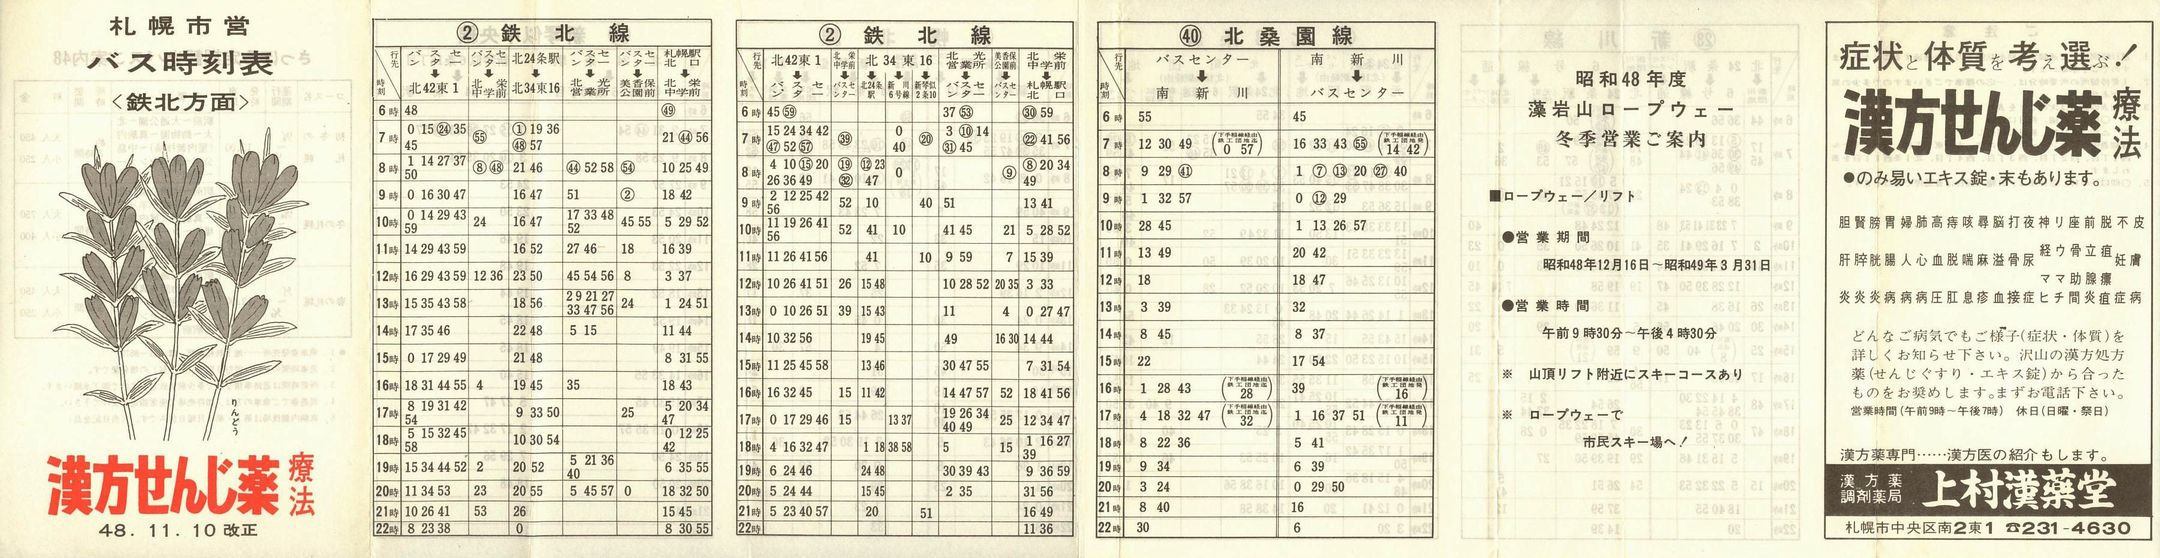 札幌市営
バス時刻表
<鉄北方面>
りんどう
漢方せんじ薬 療法
48. 11. 10 改正
② 鉄北線
行先 時刻
バスセンター → 北42東1
バスセンター → 栄中学前
北24条駅 → 北34東16
バスセンター → 北光営業所
バスセンター → 美香保公園前
札幌駅北口 → 栄中学前
6時 48 ㊾
7時 0 15 ㉔ 35 45 55 ① 19 36 ㊽ 57 21 ㊹ 56
8時 1 14 27 37 50 ⑧ ㊽ 21 46 ㊹ 52 58 54 10 25 49
9時 0 16 30 47 16 47 51 ② 18 42
10時 0 14 29 43 59 24 16 47 17 33 48 52 45 55 5 29 52
11時 14 29 43 59 16 52 27 46 18 16 39
12時 16 29 43 59 12 36 23 50 45 54 56 8 3 37
13時 15 35 43 58 18 56 2 9 21 27 33 47 56 24 1 24 51
14時 17 35 46 22 48 5 15 11 44
15時 0 17 29 49 21 48 8 31 55
16時 18 31 44 55 4 19 45 35 18 43
17時 8 19 31 42 54 9 33 50 25 5 20 34 47
18時 5 15 32 45 58 10 30 54 0 12 25 42
19時 15 34 44 52 2 20 52 5 21 36 40 6 35 55
20時 11 34 53 23 20 55 5 45 57 0 18 32 50
21時 10 26 41 53 26 15 45
22時 8 23 38 0 8 30 55
② 鉄北線
行先 時刻
北42東1 → バスセンター
栄中学前 → バスセンター
北34東16 → 北24条駅
北光営業所 → バスセンター
美香保公園前 → バスセンター
栄中学前 → 札幌駅北口
6時 45 59 37 53 ㉚ 59
7時 15 24 34 42 ㊼ 52 57 ㊴ 0 40 ⑳ 3 ⑩ 14 ㉛ 45 ㉒ 41 56
8時 4 10 ⑮ 20 26 36 49 ⑲ ㉜ ⑫ 23 47 0 ⑨ ⑧ 20 34 49
9時 2 12 25 42 56 52 10 40 51 13 41
10時 11 19 26 41 56 52 41 10 41 45 21 5 28 52
11時 11 26 41 56 41 10 9 59 7 15 39
12時 10 26 41 51 26 15 48 10 28 52 20 35 3 33
13時 0 10 26 51 39 15 43 11 4 0 27 47
14時 10 32 56 19 45 49 16 30 14 44
15時 11 25 45 58 13 46 30 47 55 7 31 54
16時 16 32 45 15 11 42 14 47 57 52 18 41 56
17時 0 17 29 46 15 13 37 19 26 34 40 49 25 12 34 47
18時 4 16 32 47 1 18 38 58 5 15 1 16 27 39
19時 6 24 46 24 48 30 39 43 9 36 59
20時 5 24 44 15 45 2 35 31 56
21時 5 23 40 57 20 51 16 49
22時 11 36
㊵ 北桑園線
行先 時刻
バスセンター → 南新川
南新川 → バスセンター
6時 55 45
7時 12 30 49 (下手稲線経由 鉄工団地迄 0 57) 16 33 43 55 (下手稲線経由 鉄工団地発 14 42)
8時 9 29 ㊶ 1 ⑦ ⑬ 20 ㉗ 40
9時 1 32 57 0 ⑫ 29
10時 28 45 1 13 26 57
11時 13 49 20 42
12時 18 18 47
13時 3 39 32
14時 8 45 8 37
15時 22 17 54
16時 1 28 43 (下手稲線経由 鉄工団地迄 28) 39 (下手稲線経由 鉄工団地発 16)
17時 4 18 32 47 (下手稲線経由 鉄工団地迄 32) 1 16 37 51 (下手稲線経由 鉄工団地発 11)
18時 8 22 36 5 41
19時 9 34 6 39
20時 3 24 0 29 50
21時 8 40 16
22時 30 6
昭和48年度
藻岩山ロープウェー
冬季営業ご案内
■ロープウェー/リフト
●営業期間
昭和48年12月16日〜昭和49年3月31日
●営業時間
午前9時30分〜午後4時30分
※ 山頂リフト附近にスキーコースあり
※ ロープウェーで
市民スキー場へ!
症状と体質を考え選ぶ!
漢方せんじ薬 療法
●のみ易いエキス錠・末もあります。
胆肝炎 腎膵炎 膀胱炎 胃腸病 婦人病 肺心病 高血圧 痔脱肛 咳喘息 蕁麻疹 脳溢血 打骨接 夜尿症 神経ママヒ リウマチ 座骨助間 前立腺炎 脱疽 不妊症 皮膚病
どんなご病気でもご様子(症状・体質)を
詳しくお知らせ下さい。沢山の漢方処方
薬(せんじぐすり・エキス錠)から合った
ものをお奨めします。まずお電話下さい。
営業時間(午前9時〜午後7時) 休日(日曜・祭日)
漢方薬専門……漢方医の紹介もします。
漢方薬調剤薬局 上村漢薬堂
札幌市中央区南2東1 ☎231-4630